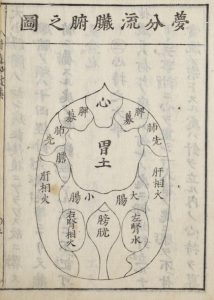 夢分流臟腑之圖
心
脾募
脾募
肺先
肺先
胃土
肝相火
肝相火
大腸
小腸
膀胱
左腎水
右腎相火